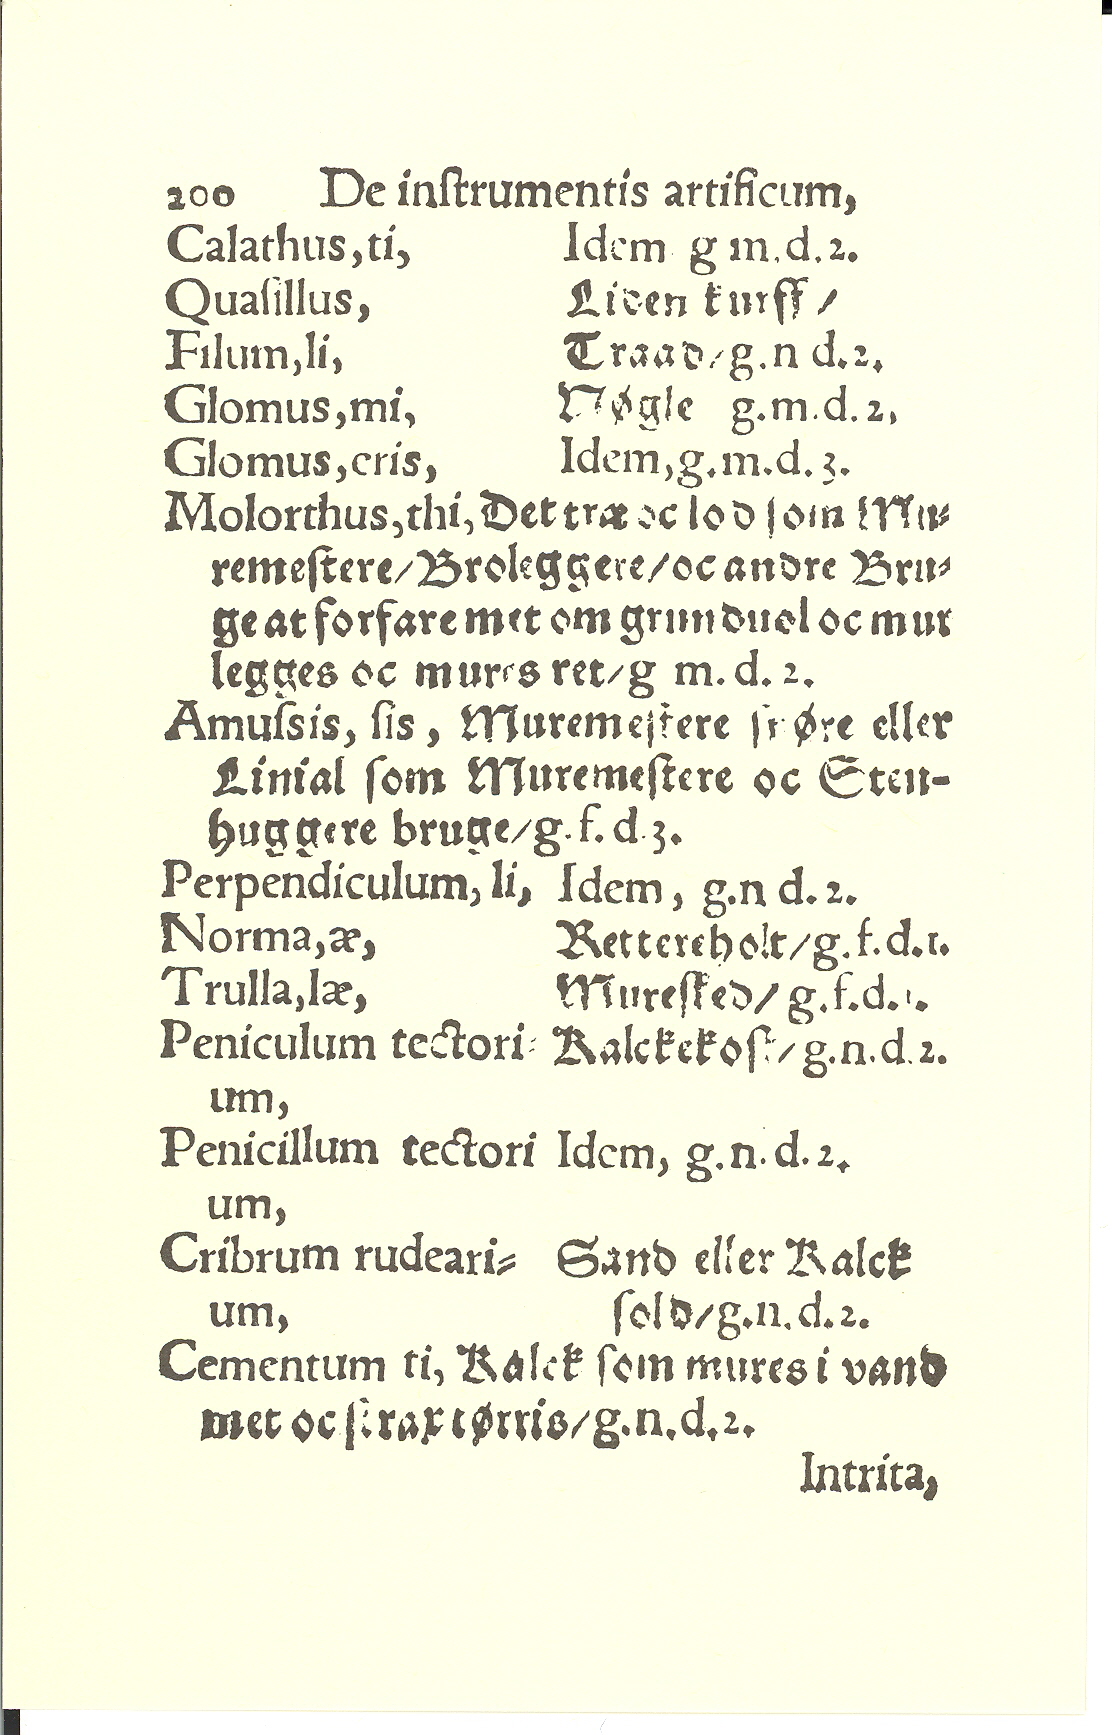 200 De inſtrumentis artificum,
Calathus,ti, Idem g m.d.2.
Quaſillus, Liden kurff /
Filum,li, Traad/g.n d.2.
Glomus,mi, Nøgle g.m.d.2,
Glomus,eris, Idem,g.m.d.3.
Molorthus,thi,Det træ oc lod ſom Mu⸗
remeſtere/Broleggere/oc andre Bru⸗
ge at forfare met om grund uol oc mur
legges oc mures ret/g m.d.2.
Amuſsis, ſis, Muremeſtere ſnøre eller
Linial ſom Muremeſtere oc Sten-
huggere bruge/g.f.d.3.
Perpendiculum, li, Idem, g.n d.2.
Norma,æ, Rettereholt/g.f.d.1.
Trulla,læ, Mureſked/g.f.d.1.
Peniculum tectori⸗ Kalckekoſt/g.n.d.2.
um,
Penicillum tectori Idem, g.n.d.2.
um,
Cribrum rudeari⸗ Sand eller Kalck
um, ſold/g.n.d.2.
Cementum ti, Kalck ſom mures i vand
met oc ſtrax tørris/g.n.d.2.
Intrita,